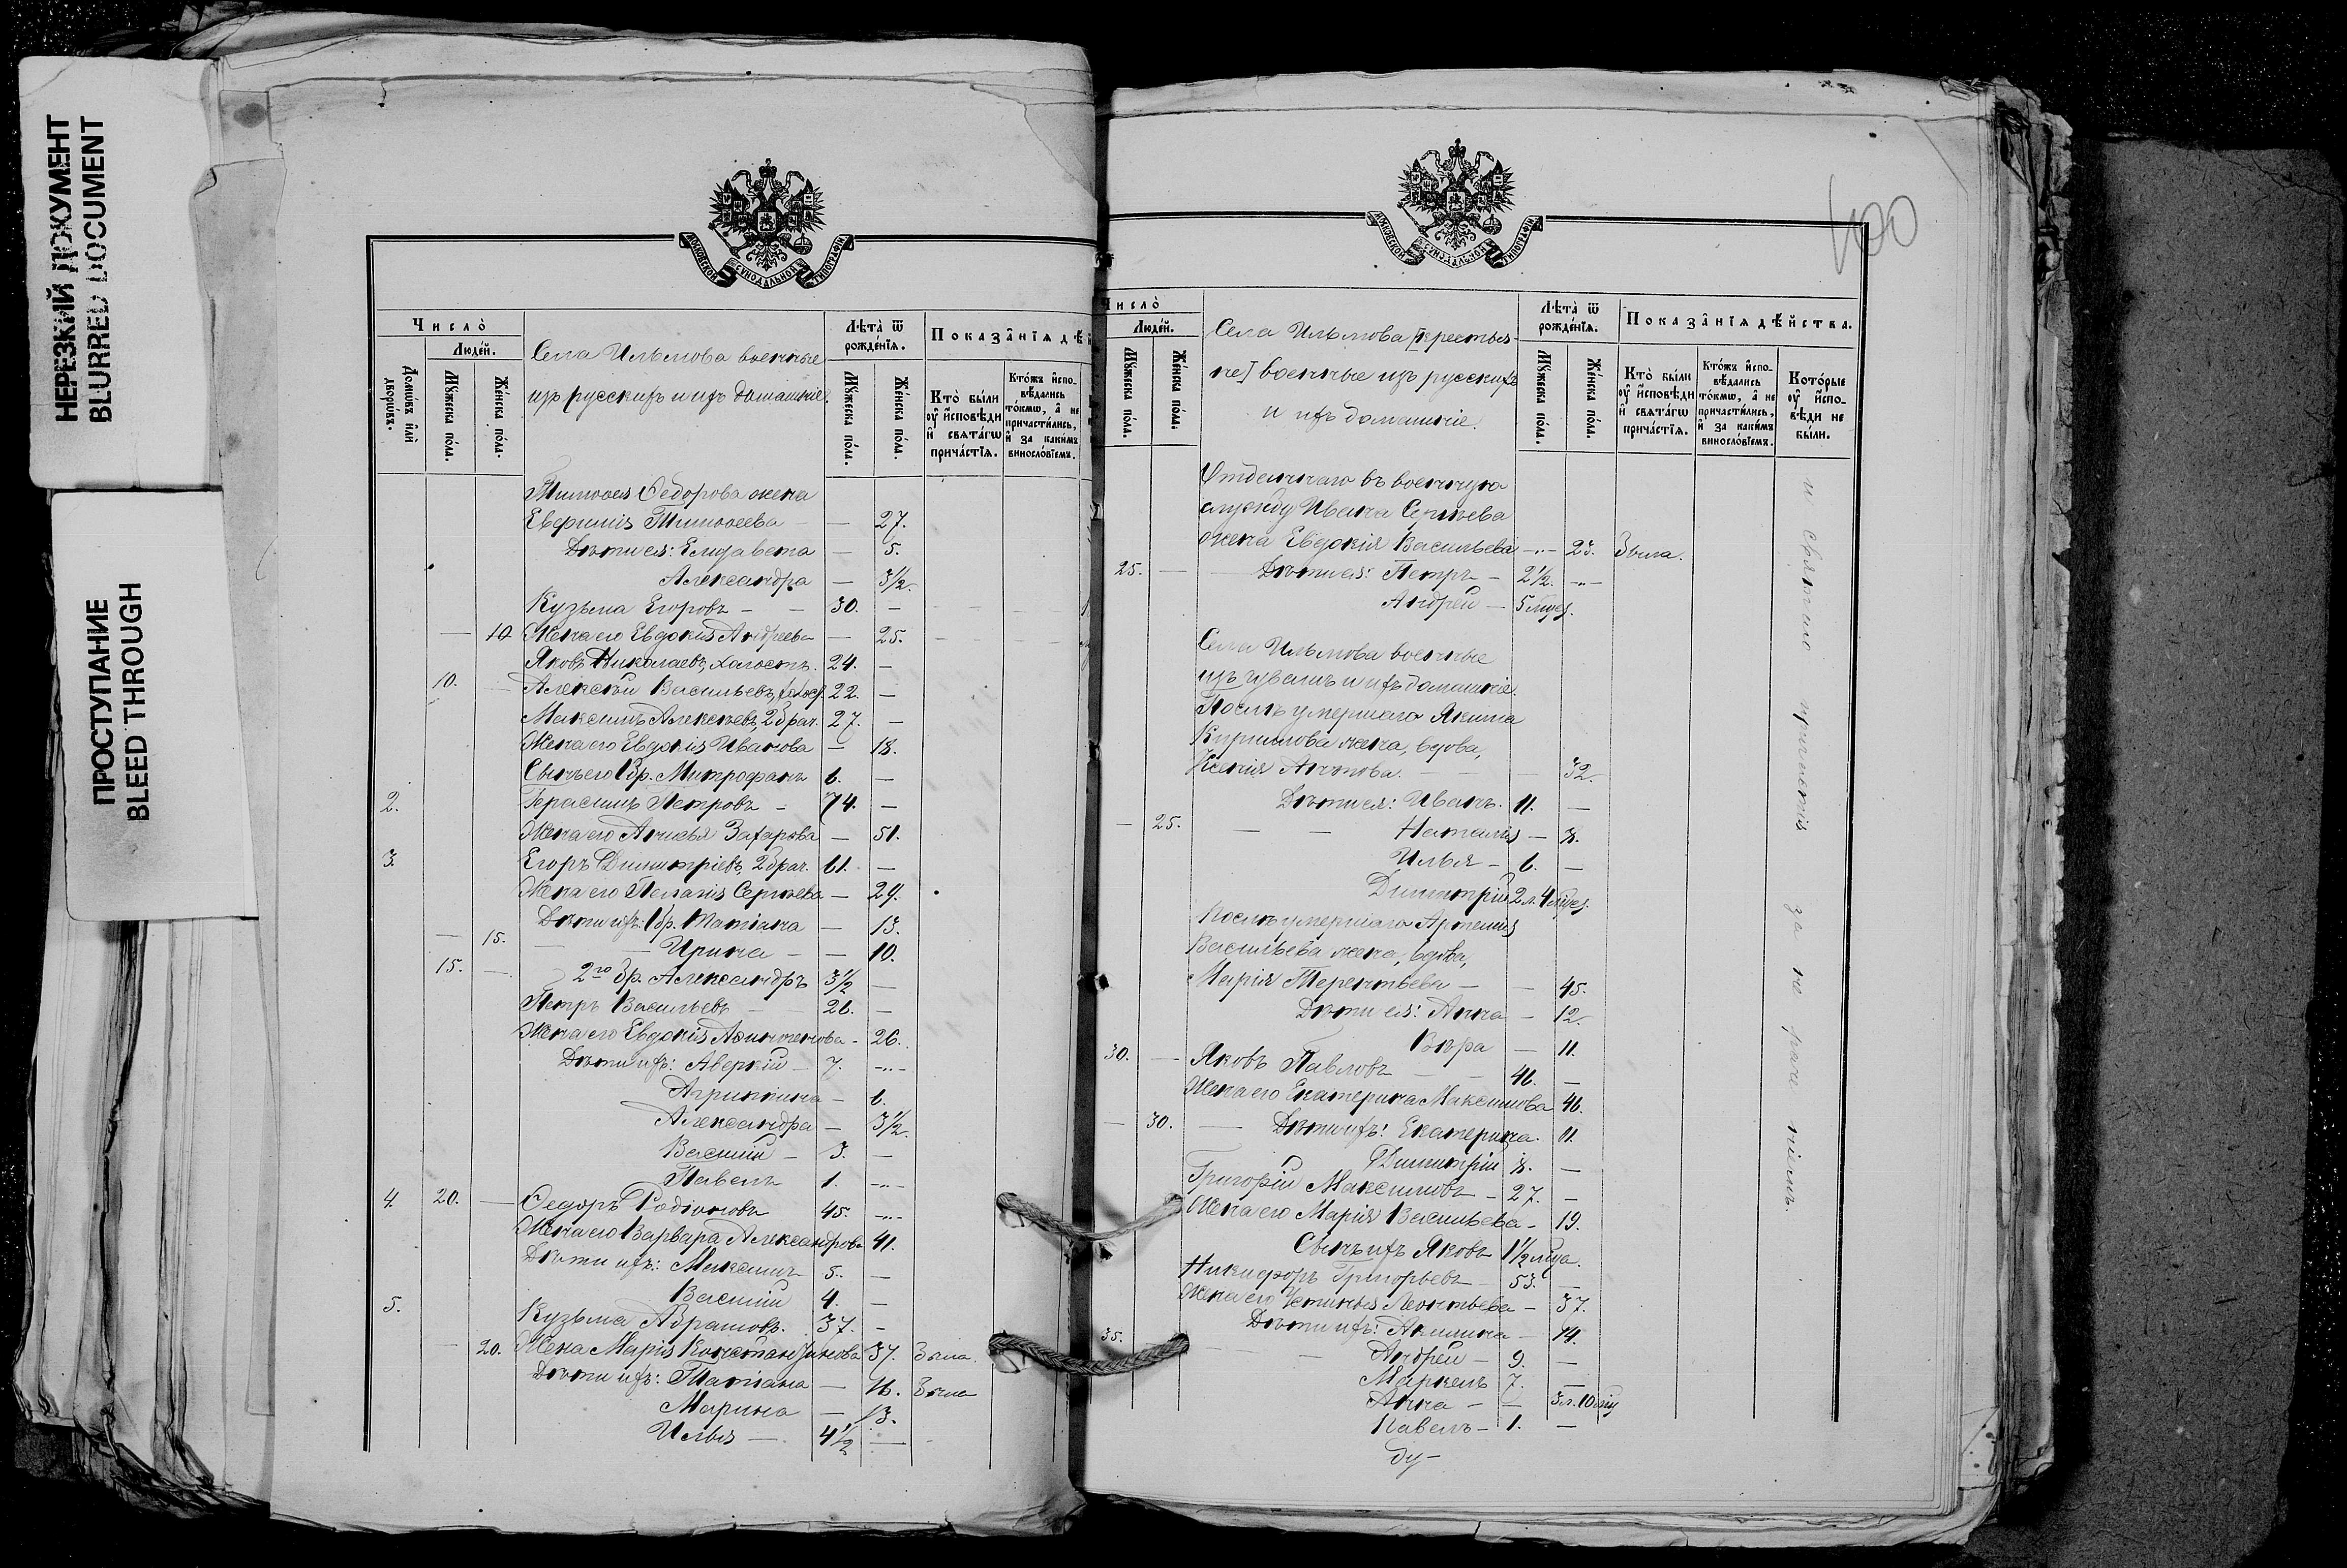 НЕРЕЗКИЙ ДОКУМЕНТ
BLURRED DOCUMENT
ПРОСТУПАНИЕ
BLEED THROUGH
МОСКОВСКОЙ СѴНОДАЛЬНОЙ ТИПОГРАФІИ
Число̀
Людей.
Домѡвъ и҆лѝ дворѡвъ.
Мꙋжеска пола.
Женска пола.
Села Ильмова военные
изъ русскихъ и ихъ домашніе.
Лѣта̀ ѿ рожденїѧ.
Мꙋжеска пола.
Женска пола.
Показанїѧ дѣ
Кто̀ были ᲂу҆ и҆сповѣди и҆ свѧтагѡ причастїѧ.
Ктожъ и҆споведались токмѡ, а҆ не причастились, и҆ за какимъ винословїемъ.
Тимоѳея Ѳедорова жена
Евфимія Тимоѳеева — — 27.
Дѣти ея: Елизавета — 5.
Александра — 3½.
Кузьма Егоровъ — — 30. —
— 10 Жена его Евдокія Андреева — 25.
Яковъ Николаевъ, холостъ. 24. —
10. — Алексѣй Васильевъ, холос. 22. —
Максимъ Алексѣевъ, 2 брач. 27. —
Жена его Евдокія Иванова — 18.
Сынъ его 1 бр. Митрофанъ 6. —
2. Герасимъ Петровъ — 74. —
Жена его Анисья Захарова — 51.
3. Егоръ Димитріевъ, 2 брач. 61. —
Жена его Пелагія Сергѣева — 29.
Дѣти ихъ: 1 бр. Татіана — 13.
— 15. — Ирина — — 10.
15. — 2го бр. Александръ 3½ —
Петръ Васильевъ — 26. —
Жена его Евдокія Аѳиногенова — 26.
Дѣти ихъ: Аверкій — 7. —
Агрипина — 6.
Александра — 3½.
Василій — 3. —
Павелъ 1. —
4. 20. — Ѳедоръ Родіоновъ 45. —
Жена его Варвара Александрова 41.
Дѣти ихъ: Максимъ 5. —
Василій 4. —
5. Кузьма Абрамовъ. 37. —
— 20. Жена Марія Константинова 37. 3 была.
Дѣти ихъ: Татіана — 16. 3 была
Марина — 13.
Илья — 4½ —
МОСКОВСКОЙ СѴНОДАЛЬНОЙ ТИПОГРАФІИ
400
Число̀
Людей.
Мꙋжеска пола.
Женска пола.
Села Ильмова [крестья-
не] военные изъ русскихъ
и ихъ домашніе.
Лѣта̀ ѿ рожденїѧ.
Мꙋжеска пола.
Женска пола.
Показанїѧ дѣйства.
Кто̀ были ᲂу҆ и҆сповѣди и҆ свѧтагѡ причастїѧ.
Ктожъ и҆споведались токмѡ, а҆ не причастились, и҆ за какимъ винословїемъ.
Которые ᲂу҆ и҆сповѣди не были.
Отданнаго въ военную
службу Ивана Сергѣева
жена Евдокія Васильева — 23. 3 была.
25. — Дѣти ея: Петръ — 2½. —
Андрей — 5 мѣся.
Села Ильмова военные
изъ чувашъ и ихъ домашніе.
Послѣ умершаго Якима
Кириллова жена, вдова,
Ксенія Антонова. — 32.
Дѣти ея: Иванъ. 11. —
— 25. — — Наталія — 8.
Илья — 6. —
Димитрій 2 л. 4 мѣся.
Послѣ умершаго Артемія
Васильева жена, вдова,
Марія Терентьева — — 45.
Дѣти ея: Анна — 12.
Вѣра — 11.
30. — Яковъ Павловъ — — 46. —
Жена его Екатерина Максимова 46.
— 30. — Дѣти ихъ: Екатерина. 11.
Димитрій 8. —
Григорій Максимовъ — 27. —
Жена его Марія Васильева — 19.
Сынъ ихъ Яковъ 1½ мѣся.
Никифоръ Григорьевъ 53. —
Жена его Устинья Леонтьева — 37.
35. Дѣти ихъ: Акилина — 14.
— — Андрей — 9. —
Маркелъ 7. —
Анна — — 3 л. 10 мѣ
Павелъ — 1. —
ду-
и святаго причастія за не